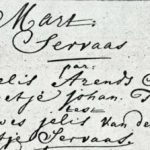 Mart.
Servaas
par:
jelis Arends
etje Johan. T
test
wes jelis van de
tje Servaas.